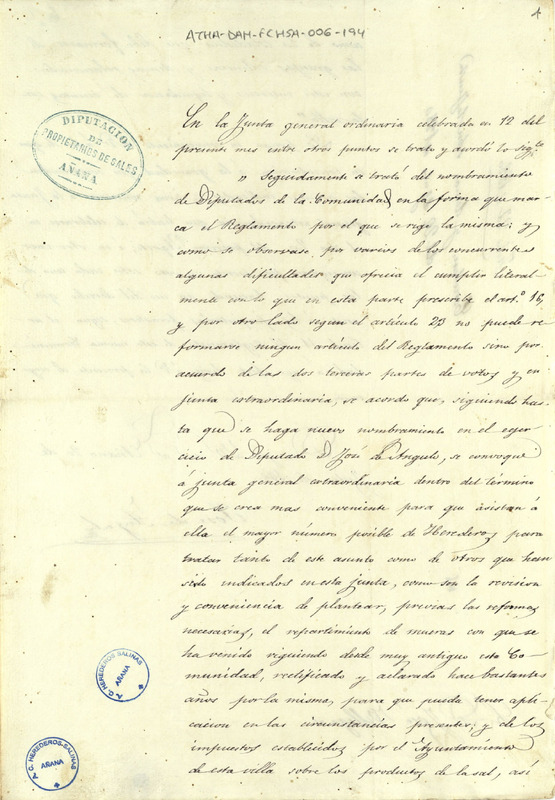 4
ATHA-DAH-FCHSA-006-194
DIPUTACION
DE
PROPIETARIOS DE SALES
AÑANA
En la Junta general ordinaria celebrada en 12 del
presente mes entre otros puntos se trato y acordó lo sigte
" Seguidamente a trató del nombramiento
de Diputados de la Comunidad en la forma que mar-
ca el Reglamento por el que se rige la misma; y
como se observase por varios de los concurrentes
algunas dificultades que ofrecia el cumplir literal-
mente con lo que en esta parte prescribe el art.º 16,
y por otro lado segun el artículo 23 no puede re-
formarse ningun artículo del Reglamento sino por
acuerdo de las dos terceras partes de votos y en
junta extraordinaria, se acordo que, siguiendo has-
ta que se haga nuevo nombramiento en el ejer-
cicio de Diputado D José de Angulo, se convoque
á junta general extraordinaria dentro del término
que se crea mas conveniente para que asistan á
ella el mayor número posible de Herederos para
tratar tanto de este asunto como de otros que han
sido indicados en esta junta, como son la revision
y conveniencia de plantear, previas las reformas
necesarias, el repartimiento de mueras con que se
ha venido rigiendo desde muy antiguo esta Co-
munidad, rectificado y aclarado hace bastantes
años por la misma, para que pueda tener apli-
cacion en las circunstancias presentes; y de los
impuestos establecidos por el Ayuntamiento
de esta villa sobre los productos de la sal, así
A. C. HEREDEROS SALINAS
AÑANA
A. C. HEREDEROS-SALINAS
AÑANA